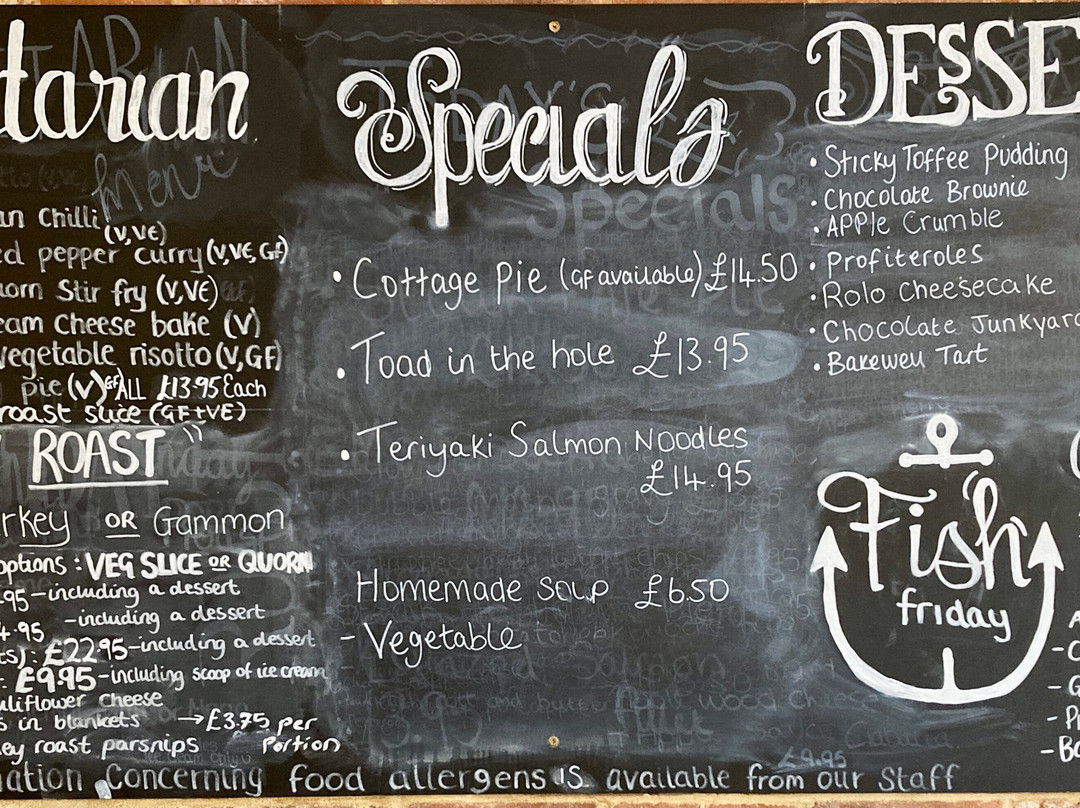 tarian
Menu
an Chilli (V,VE)
ed pepper curry (V,VE,GF)
orn Stir fry (V,VE)
eam Cheese bake (V)
vegetable risotto (V,GF)
pie (V) GF ALL £13.95 Each
roast slice (GF+VE)
ROAST
rkey OR Gammon
options : VEG SLICE OR QUORN
.95 - including a dessert
4.95 - including a dessert
ts): £22.95 - including a dessert
: £9.95 - including scoop of ice cream
uliflower cheese
s in blankets → £3.75 per
ey roast parsnips Portion
Specials
Specials
• Cottage Pie (GF available) £14.50
• Toad in the hole £13.95
• Teriyaki Salmon Noodles
£14.95
Homemade soup £6.50
- Vegetable
£9.95
DESSE
• Sticky Toffee Pudding
• Chocolate Brownie
• APPle Crumble
• Profiteroles
• Rolo Cheesecake
• Chocolate Junkyard
• Bakewell Tart
Fish
friday
mation Concerning food allergens is available from our Staff